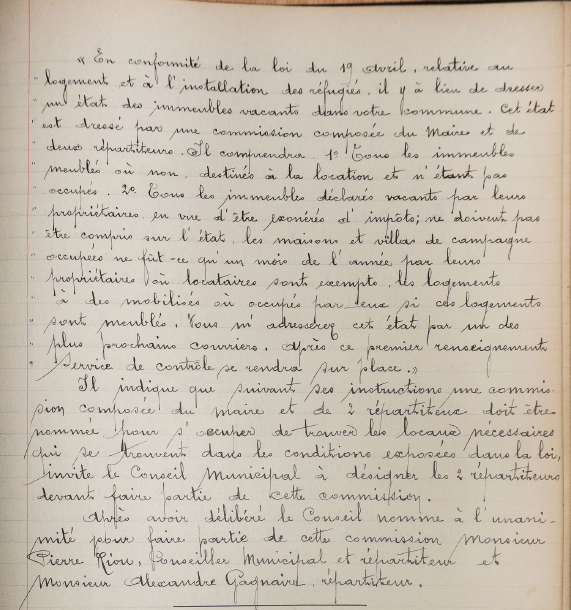 « En conformité de la loi du 19 avril, relative au
" logement et à l'installation des réfugiés, il y à lieu de dresser
" un état des immeubles vacants dans votre commune. Cet état
" est dressé par une commission composée du Maire et de
" deux répartiteurs. Il comprendra. 1º Tous les immeubles
" meublés où non, destinés à la location et n'étant pas
" occupés. 2º Tous les immeubles déclarés vacants par leurs
" propriétaires, en vue d'être exonérés d'impôts; ne doivent pas
" être compris sur l'état, les maisons et villas de campagne
" occupées ne fût-ce qu'un mois de l'année par leurs
" propriétaires où locataires sont exempts, les logements
" à des mobilisés où occupés par eux si ces logements
" sont meublés. Vous m'adresserez cet état par un des
" plus prochains courriers. Après ce premier renseignement
" Service de contrôle se rendra sur place.»
Il indique que suivant ses instructions une commis-
sion composée du maire et de 2 répartiteux doit être
nommée pour s'occuper de trouver les locaux nécessaires
qui se trouvent dans les conditions exposées dans la loi,
invite le Conseil Municipal à désigner les 2 répartiteurs
devant faire partie de cette commission.
Après avoir délibéré le Conseil nomme à l'unani-
mité pour faire partie de cette commission Monsieur
Pierre Riou, Conseiller Municipal et répartiteur et
Monsieur Alexandre Gagnaire, répartiteur.